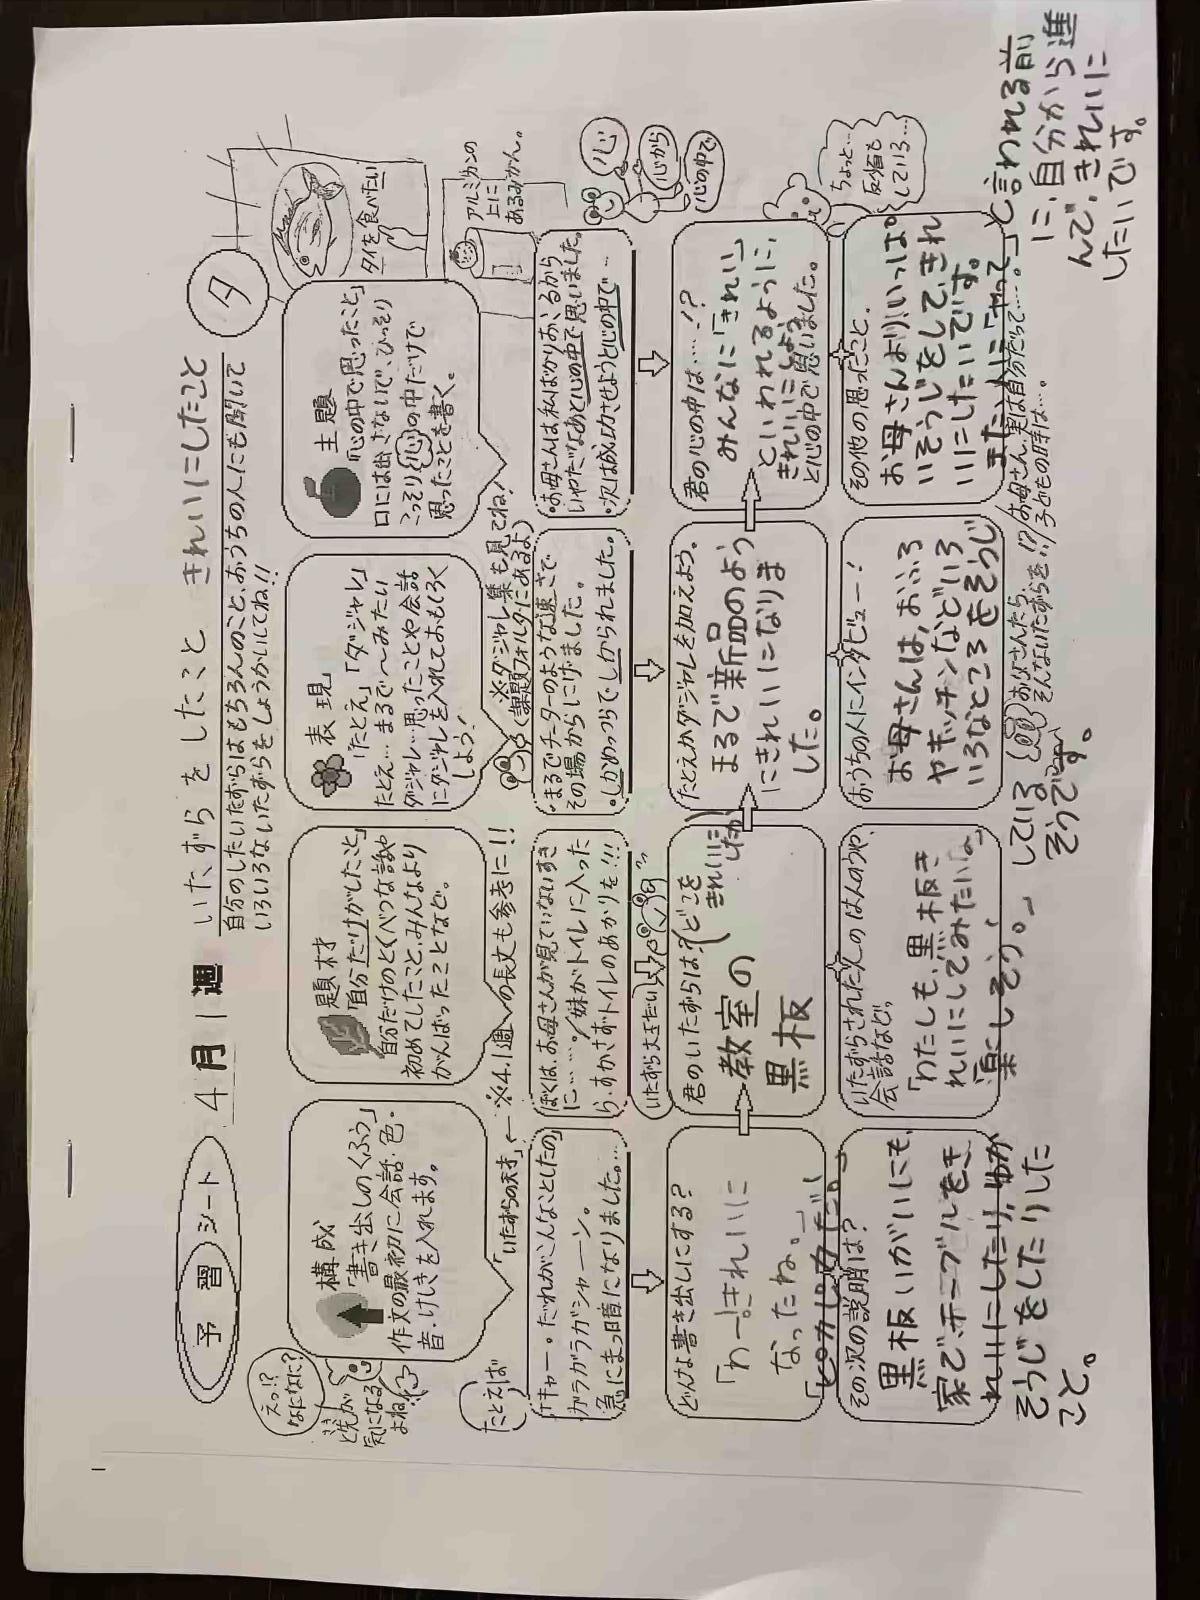 予習シート 4月1週 いたずらをしたこと きれいにしたこと タ
自分のしたいたずらはもちろんのこと、おうちの人にも聞いて
いろいろないたずらをしょうかいしてね!!
えっ!?
なになに?
と先が
気になる
よね
構成
「書き出しのくふう」
作文の最初に会話・色・
音・けしきを入れます。
題材
「自分だけがしたこと」
自分だけのとくべつな話や
初めてしたこと、みんなより
がんばったことなど。
表現
「たとえ」「ダジャレ」
たとえ…まるで〜みたい
ダジャレ…思ったことや会話
にダジャレを入れておもしろく
しよう!
主題
「心の中で思ったこと」
口には出さないで、ひっそり
こっそり心の中だけで
思ったことを書く。
タイを食べたい
アルミカンの
上に
あるみかん。
「いたずらの天才」←※4.1週の長文も参考に!!
※ダジャレ集も見てね!
(課題フォルダにあるよ)
たとえば
「キャー。だれがこんなことしたの」
ガラガラガシャーン。
急にまっ暗になりました。…
ぼくは、お母さんが見ていないすき
に……。/妹がトイレに入った
ら、すかさずトイレのあかりを…!!
・まるでチーターのような速さで
その場からにげました。
・しかめっつらでしかられました。
・お母さんは私ばかりおこるから
いやだなあと心の中で思いました。
・次は成功させようと心の中で…
心
心から
心の中で
いたずら大王だい
どんな書き出しにする?
「わー!きれいに
なったね。」
「ピカピカだ。」
君のいたずらは?(どこをきれいにしたか)
教室の
黒板
たとえかダジャレを加えよう。
まるで新品のよう
にきれいになりま
した。
君の心の中は……!?
みんなに「きれい」
といわれるように、
きれいにしよう
と心の中で思いました。
ちょっと…
反省も
している…
その次の説明は?
黒板いがいにも、
家で、テーブルをき
れいにしたり、ゆか
そうじをしたりした
こと。
いたずらされた人のはんのうや、
会話など…
「わたしも、黒板き
れいにしてみたいな。
楽しそう。」
おうちの人にインタビュー!
お母さんは、おふろ
やキッチンなどいろ
いろなところをそうじ
している
そうです。
お父さんたら、
そんないたずらを…!?
お母さん、実は自分だって……。
子どもの時は…。
その他の思ったこと。
お母さんより、いっぱ
いそうじをして、きれ
いにしたいです。
また、人に「やって」と言われる前
に、自分から進
んで、きれいに
したいです。